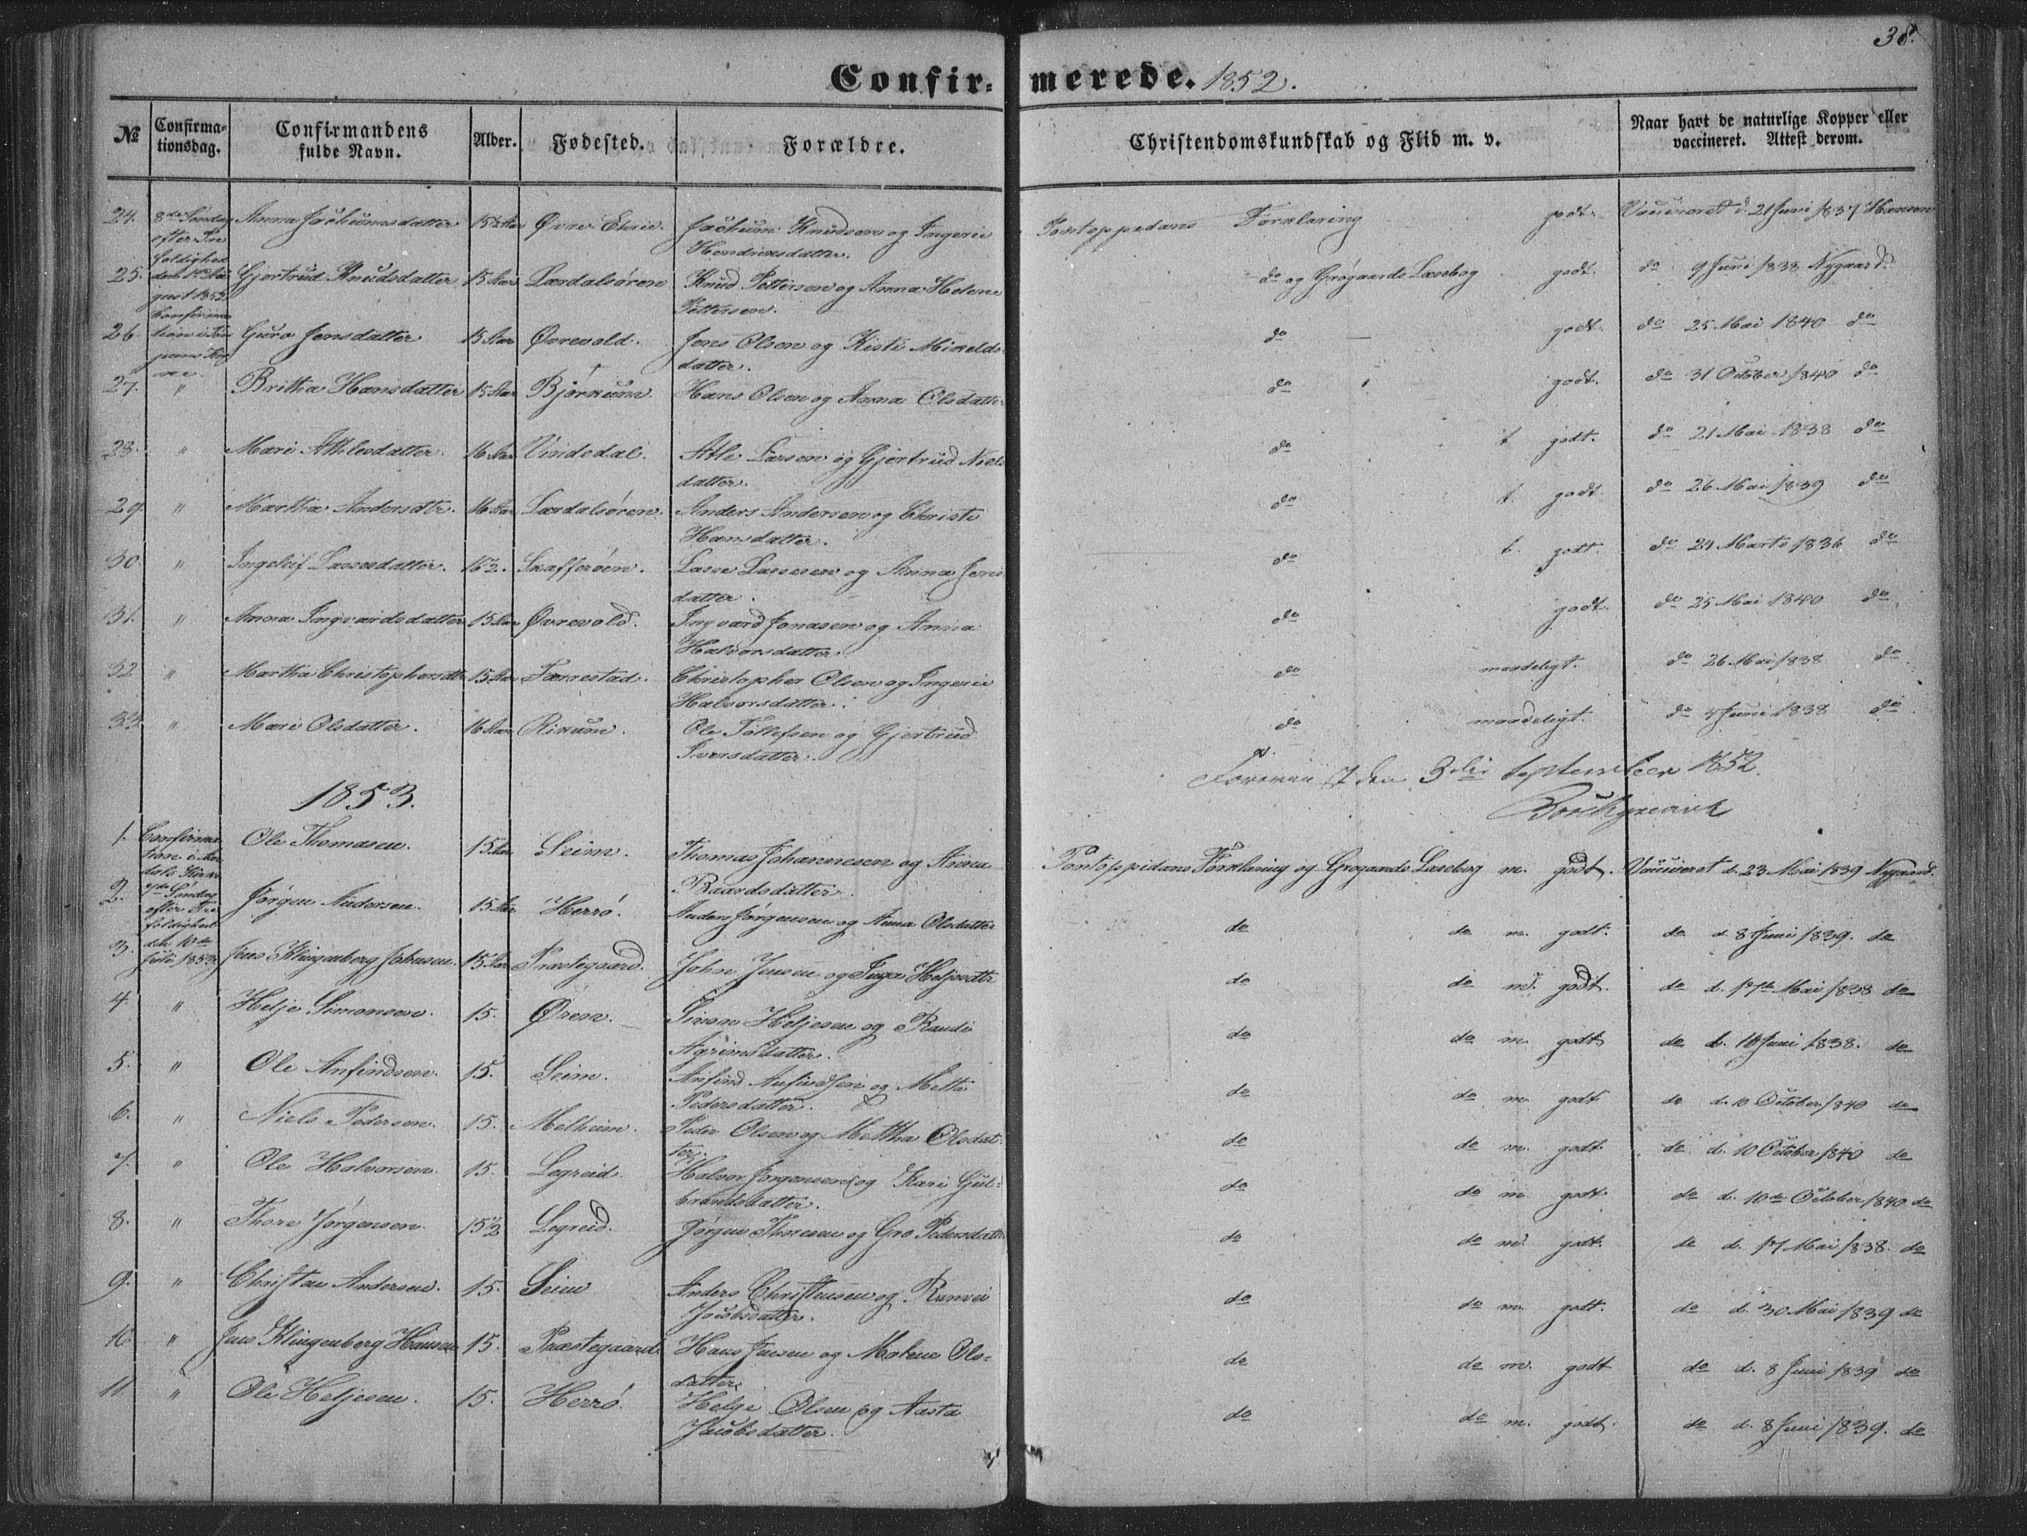 38.
Confirmerede. 1852.
№ Confirmationsdag. Confirmandens fulde Navn. Alder. Fødested. Forældre. Christendomskundskab og Flid m. v. Naar havt de naturlige Kopper eller vaccineret. Attest derom.
24. 8de Søndag Anna Jachumsdatter Øvre Jachum Knudsen og Ingerie Pontoppidans Forklaring godt. Vaccineret d. 21 Juni 1837 Hansen
efter Tre Hendriksdatter.
foldighed
25. Gjertrud Knudsdatter 15 Aar Lærdalsøren Knud Pettersen og Anna Helene do og Grøgaards Læsebog godt. do 9 Juni 1838 Nygaard.
1852. Pettersen.
Confirma
26. Guro Jensdatter 15 Aar Øvrevold. Jens Olsen og Kisti Mikelds- do godt. do 25 Mai 1840 do
datter.
27. " Britha Hansdatter 15 Aar Bjørkum. Hans Olsen og Anna Olsdatter do godt. do 31 October 1840 do
28. " Mari Athlesdatter. 16 Aar Vindedal. Atle Larsen og Gjertrud Niels do t. godt. do 21 Mai 1838 do
datter.
29. " Martha Andersdtr. 16 Aar Lærdalsøren. Anders Andersen og Christi do t. godt. do 26 Mai 1839 do
Hansdatter.
30. " Ingeleif Lassesdatter. 16½. Skafferøen. Lasse Lassesen og Anna Jens do t. godt. do 24 Marts 1836 do
datter.
31. " Anna Ingvardsdatter 15 Aar Øvrevold. Ingvard Jonasen og Anna do godt. do 25 Mai 1840 do
Halvorsdatter.
32 " Martha Christophersdtr 15 Aar Færrestad. Christopher Olsen og Ingerie do maadeligt. do 26 Mai 1838 do
Halvorsdatter.
33. " Mari Olsdatter. 16 Aar Rikum. Ole Tollefsen og Gjertrud do maadeligt. do 4 Juni 1838 do
Iversdatter.
den 3die September 1852.
1853.
1. Confirma Ole Thomasen. 15 Aar Seim. Thomas Johannesen og Anna Pontoppidans Forklaring og Grøgaards Læsebog m. godt. Vaccineret d. 23 Mai 1839 Nygaard.
tion i Aar Baardsdatter.
dals Kirke
2. Søndag Jørgen Andersen. 15 Aar Herrø. Anders Jørgensen og Anna Olsdatter do do m. godt. do d. 8 Juni 1839. do
efter Tre
foldighed
3. den 10de Jens Klingenberg Johnsen. 15 Aar Præstegaard. John Jensen og Inga Heljesdtr do do m. godt. do d. 17de Mai 1838 do
Juli 1853.
4. " Helje Simonsen. 15. Øren. Simon Heljesen og Randi do do m. godt do d. 16 Juni 1838. do
Agrimsdatter.
5. " Ole Anfindsen. 15. Seim. Anfind Anfindsen og Metti do do m. godt do d. 10 October 1840 do
Pedersdatter.
6. " Niels Pedersen. 15. Melheim. Peder Olsen og Mettha Olsdat- do do m. godt do d. 10 October 1840 do
ter.
7. " Ole Halvorsen. 15. Legreid. Halvor Jørgensen og Kari Gul- do do m. godt. do d. 10de October 1840 do
brandsdatter.
8. " Thore Jørgensen. 15½ Legreid. Jørgen Thoresen og Gro Pedersdatter do do m. godt. do d. 17 Mai 1838. do
9. " Christen Andersen. 15. Seim Anders Christensen og Ranvei do do m. godt. do d. 30 Mai 1839 do
Jacobsdatter.
10. " Jens Klingenberg Hansen 15. Præstegaard. Hans Jensen og Malene Ols- do do m. godt do d. 8 Juni 1839 do
datter.
11. " Ole Heljesen. 15. Herrø. Helge Olsen og Aasta do do m. godt. do d. 8 Juni 1839. do
Jacobsdatter.